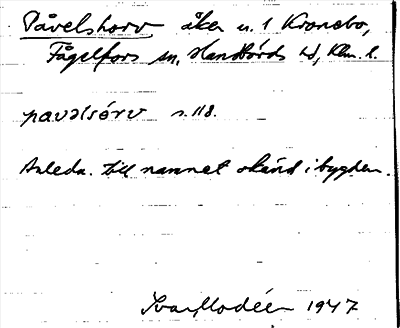 Påvelshorv åker u. 1 Kronebo,
Fågelfors sn, Handbörds hd, Klm. l.
pavəlsórv s. 118.
Anledn. till namnet okänd i bygden.
Ivar Modéer 1947